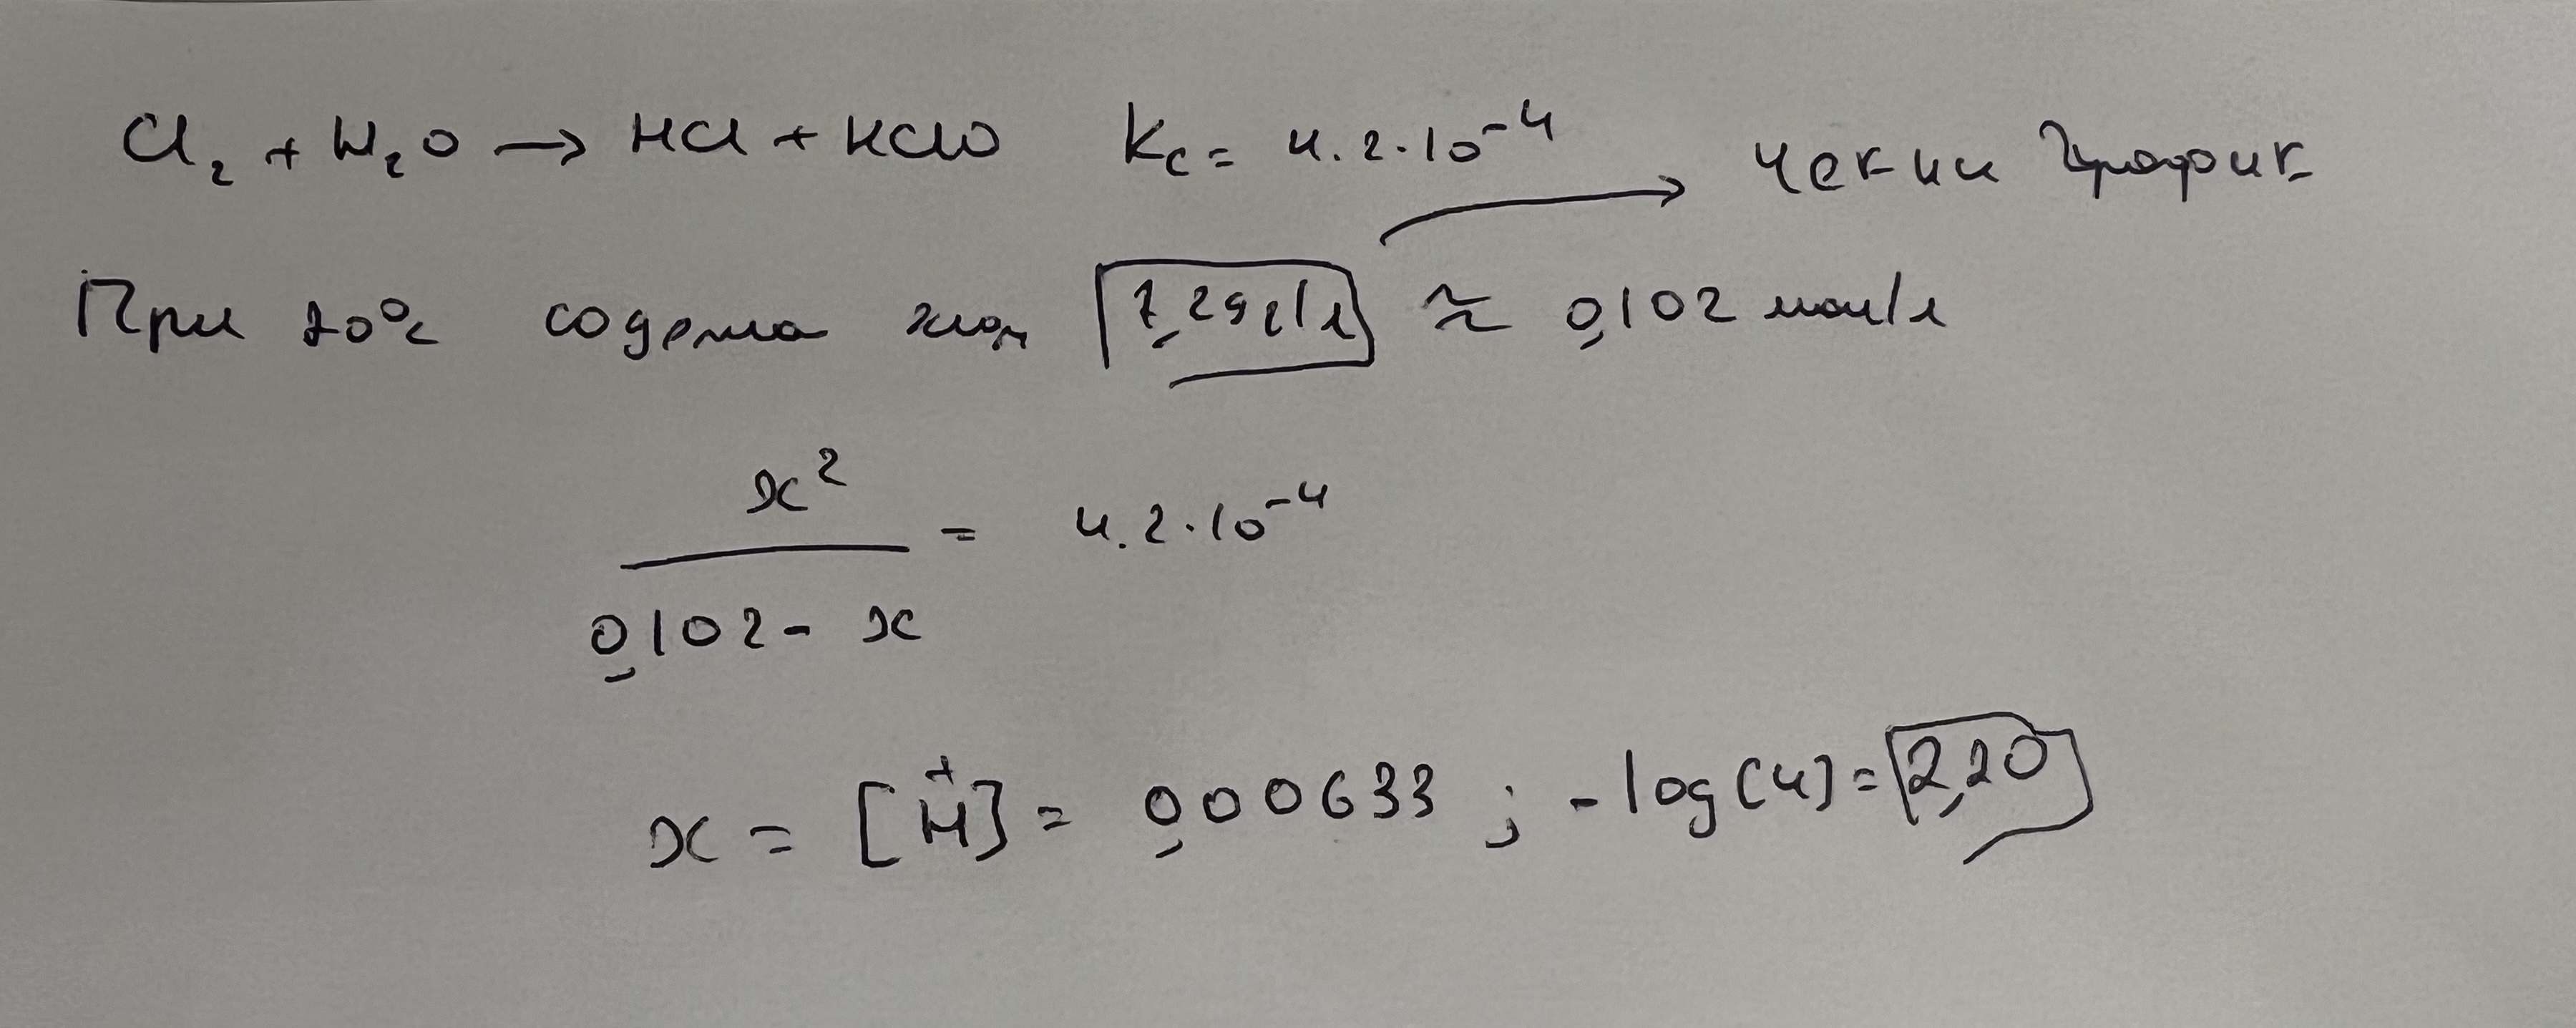 Cl₂ + H₂O → HCl + HClO Kc = 4.2·10⁻⁴ чекни график
При 20°C содержа хлор 7,29 г/л ≈ 0,102 моль/л
x²
/ 0,102 - x = 4.2·10⁻⁴
x = [H⁺] = 0,00633 ; -log(4) = 2,20